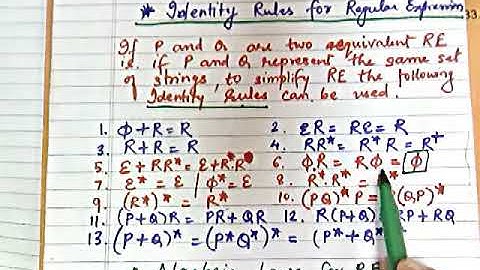 * Identity Rules for Regular Expression
33
If P and Q are two equivalent RE
i.e. if P and Q represent the same set
of strings, to simplify RE the following
Identity Rules can be used.
1. ϕ+R=R 2. εR=Rε=R
3. R+R=R 4. RR*=R*R=R⁺
5. ε+RR*=ε+R*R 6. ϕR=Rϕ=ϕ
7. ε*=ε | ϕ*=ε 8. R*R*= *
9. (R*)*=R* 10. (PQ)*P= (QP)*
11. (P+Q)R=PR+QR 12. R(P+Q) RP+RQ
13. (P+Q)*=(P*Q*)*=(P*+Q*